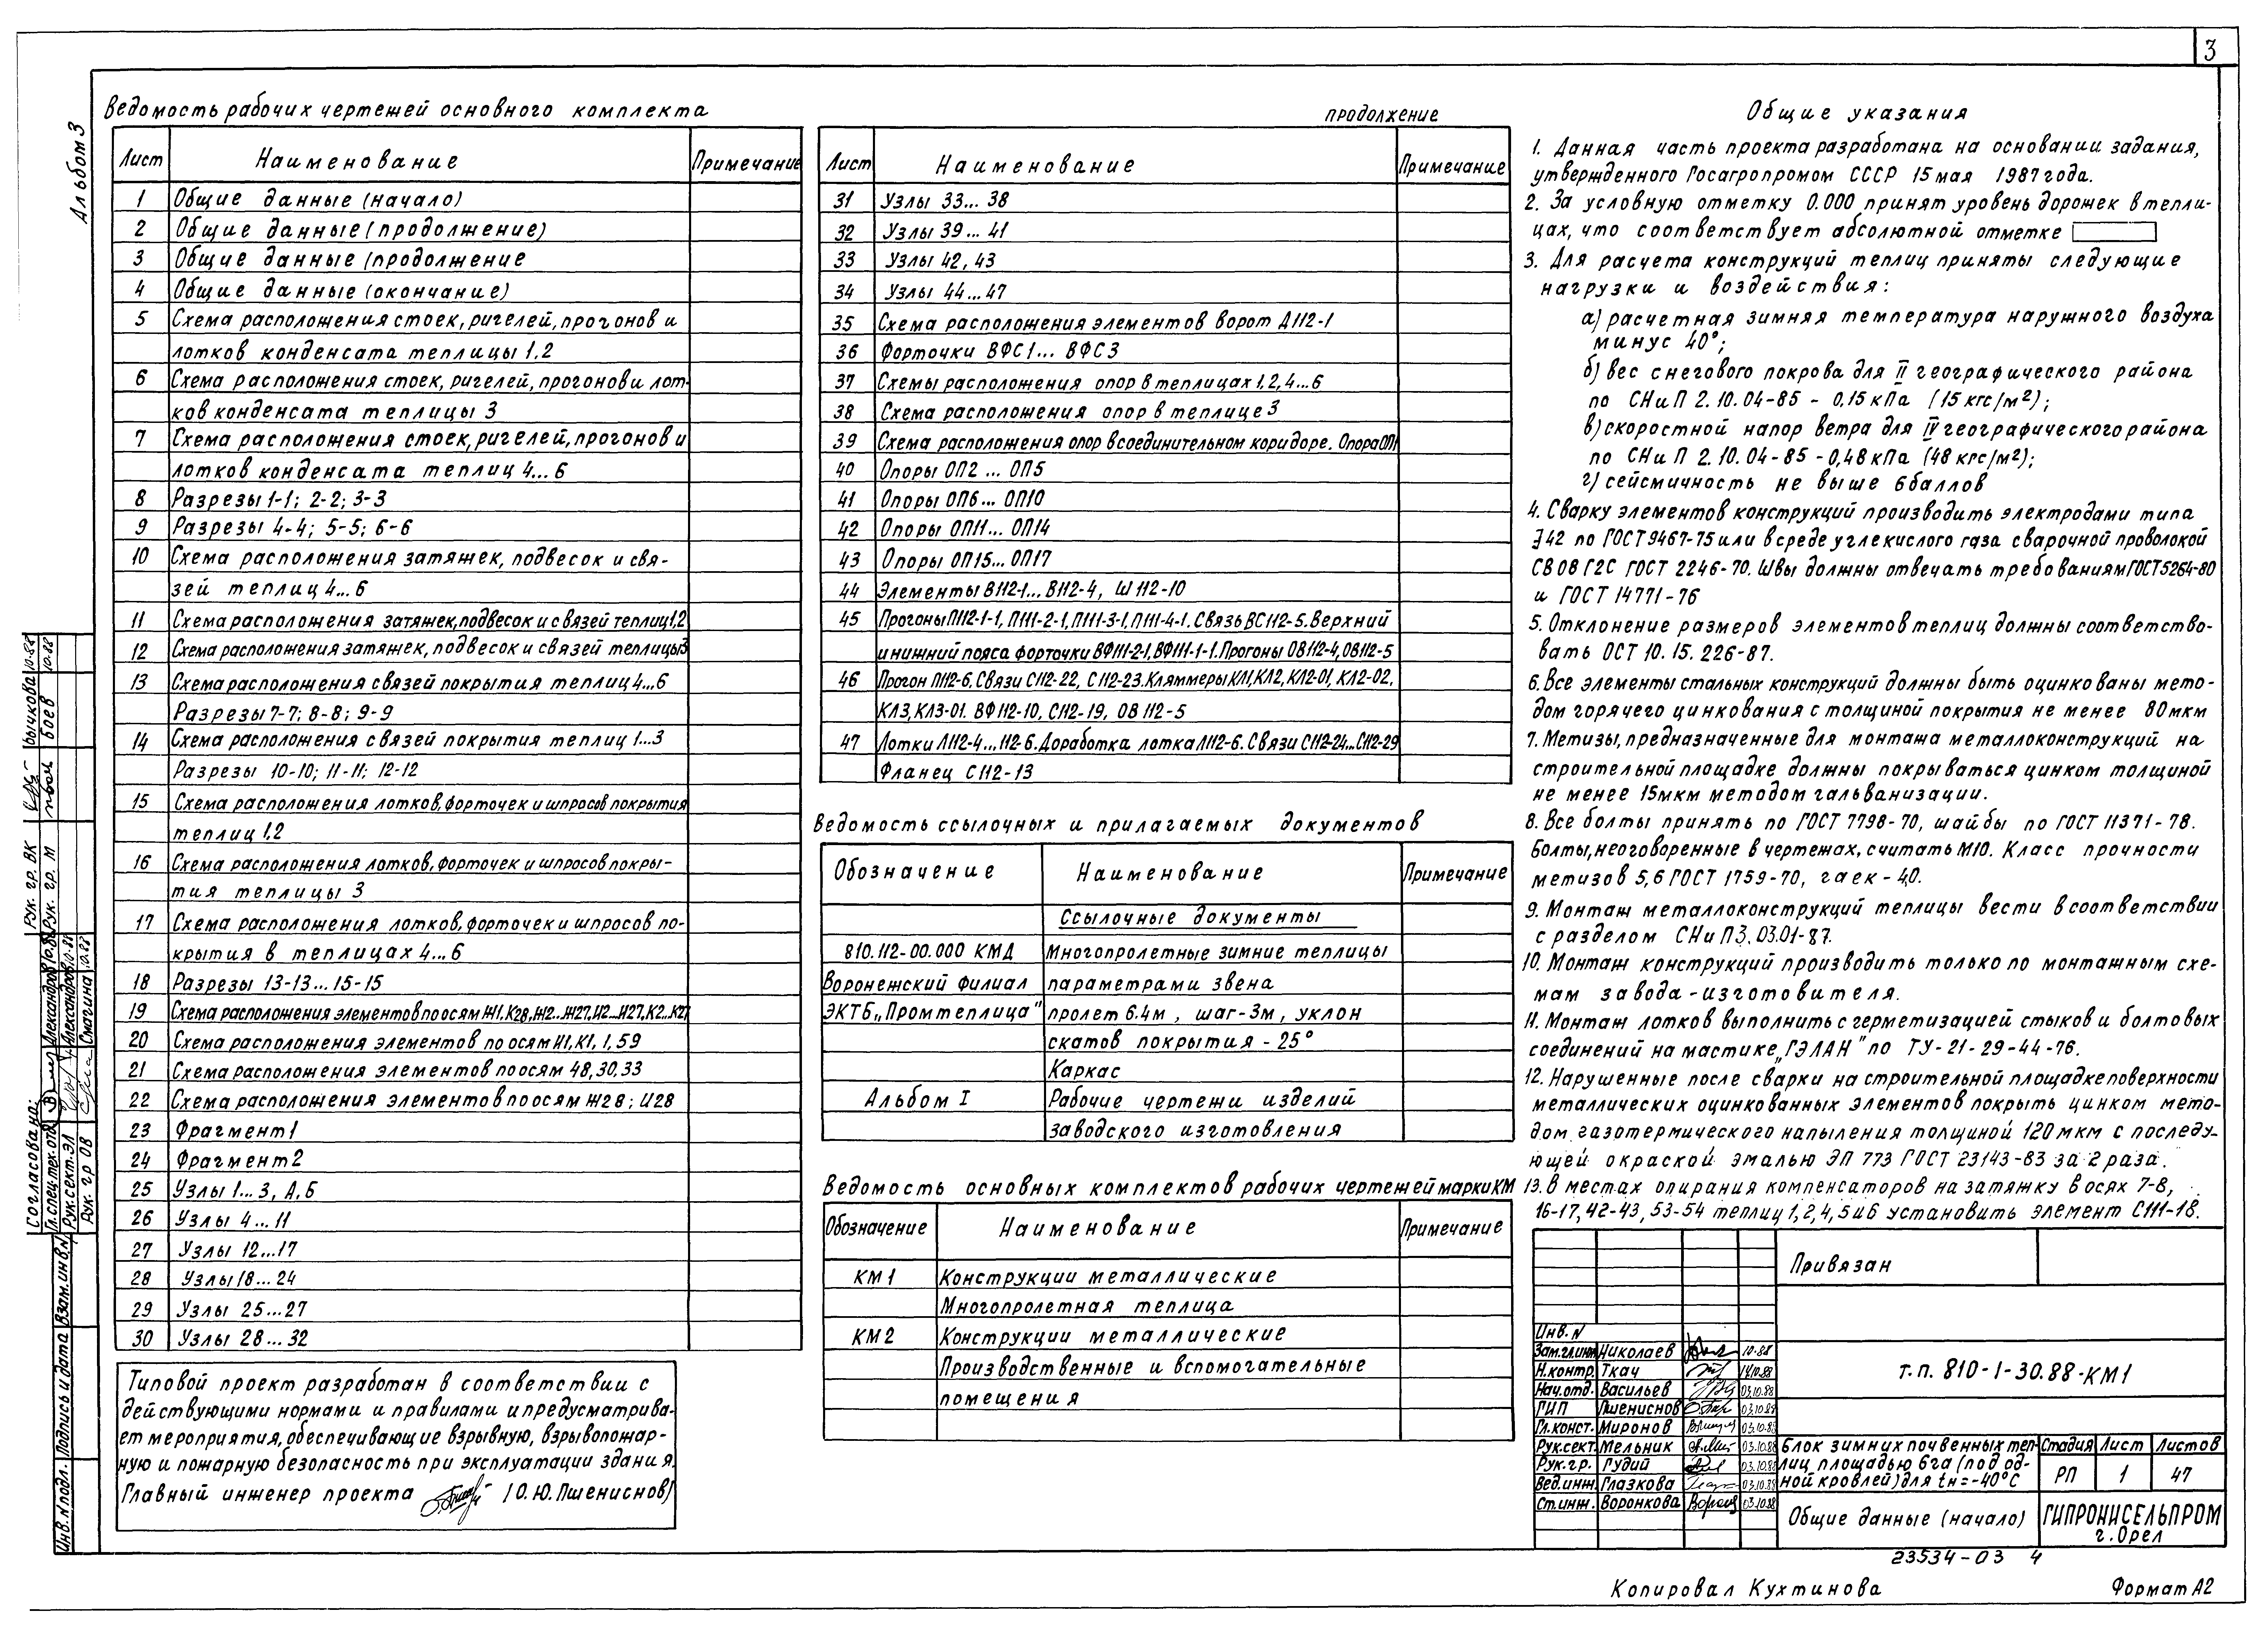 3
Альбом 3
Ведомость рабочих чертежей основного комплекта
Лист Наименование Примечание
1 Общие данные (начало)
2 Общие данные (продолжение)
3 Общие данные (продолжение
4 Общие данные (окончание)
5 Схема расположения стоек, ригелей, прогонов и
лотков конденсата теплицы 1,2
6 Схема расположения стоек, ригелей, прогонов и лот-
ков конденсата теплицы 3
7 Схема расположения стоек, ригелей, прогонов и
лотков конденсата теплиц 4...6
8 Разрезы 1-1; 2-2; 3-3
9 Разрезы 4-4; 5-5; 6-6
10 Схема расположения затяжек, подвесок и свя-
зей теплиц 4...6
11 Схема расположения затяжек, подвесок и связей теплиц 1,2
12 Схема расположения затяжек, подвесок и связей теплицы 3
13 Схема расположения связей покрытия теплиц 4...6
Разрезы 7-7; 8-8; 9-9
14 Схема расположения связей покрытия теплиц 1...3
Разрезы 10-10; 11-11; 12-12
15 Схема расположения лотков, форточек и шпросов покрытия
теплиц 1,2
16 Схема расположения лотков, форточек и шпросов покры-
тия теплицы 3
17 Схема расположения лотков, форточек и шпросов по-
крытия в теплицах 4...6
18 Разрезы 13-13...15-15
19 Схема расположения элементов по осям Ж1, К28, Ж2...Ж27, И2...И27, К2...К27
20 Схема расположения элементов по осям И1, К1, 1, 59
21 Схема расположения элементов по осям 48, 30, 33
22 Схема расположения элементов по осям Ж28; И28
23 Фрагмент 1
24 Фрагмент 2
25 Узлы 1...3, А, Б
26 Узлы 4...11
27 Узлы 12...17
28 Узлы 18...24
29 Узлы 25...27
30 Узлы 28...32
Типовой проект разработан в соответствии с
действующими нормами и правилами и предусматрива-
ет мероприятия, обеспечивающие взрывную, взрывопожар-
ную и пожарную безопасность при эксплуатации здания.
Главный инженер проекта (О.Ю. Пшениснов)
продолжение
Лист Наименование Примечание
31 Узлы 33...38
32 Узлы 39...41
33 Узлы 42, 43
34 Узлы 44...47
35 Схема расположения элементов ворот Д112-1
36 Форточки ВФС1...ВФС3
37 Схемы расположения опор в теплицах 1,2,4...6
38 Схема расположения опор в теплице 3
39 Схема расположения опор в соединительном коридоре. Опора ОП1
40 Опоры ОП2...ОП5
41 Опоры ОП6...ОП10
42 Опоры ОП11...ОП14
43 Опоры ОП15...ОП17
44 Элементы В112-1...В112-4, Ш112-10
45 Прогоны П112-1-1, П111-2-1, П111-3-1, П111-4-1. Связь ВС112-5. Верхний
и нижний пояса форточки ВФ111-2-1, ВФ111-1-1. Прогоны ОВ112-4, ОВ112-5
46 Прогон П112-6. Связи С112-22, С112-23. Кляммеры КЛ1, КЛ2, КЛ2-01, КЛ2-02,
КЛ3, КЛ3-01. ВФ112-10, С112-19, ОВ112-5
47 Лотки Л112-4...112-6. Доработка лотка Л112-6. Связи С112-24...С112-29
Фланец С112-13
Ведомость ссылочных и прилагаемых документов
Обозначение Наименование Примечание
Ссылочные документы
810.112-00.000 КМД Многопролетные зимние теплицы
Воронежский филиал параметрами звена
ЭКТБ „Промтеплица" пролет 6.4м, шаг-3м, уклон
скатов покрытия - 25°
Каркас
Альбом I Рабочие чертежи изделий
заводского изготовления
Ведомость основных комплектов рабочих чертежей марки КМ
Обозначение Наименование Примечание
КМ1 Конструкции металлические
Многопролетная теплица
КМ2 Конструкции металлические
Производственные и вспомогательные
помещения
Общие указания
1. Данная часть проекта разработана на основании задания,
утвержденного Госагропромом СССР 15 мая 1987 года.
2. За условную отметку 0.000 принят уровень дорожек в тепли-
цах, что соответствует абсолютной отметке
3. Для расчета конструкций теплиц приняты следующие
нагрузки и воздействия:
а) расчетная зимняя температура наружного воздуха
минус 40°;
б) вес снегового покрова для II географического района
по СНиП 2.10.04-85 - 0,15 кПа (15 кгс/м²);
в) скоростной напор ветра для IV географического района
по СНиП 2.10.04-85 - 0,48 кПа (48 кгс/м²);
г) сейсмичность не выше 6 баллов
4. Сварку элементов конструкций производить электродами типа
Э42 по ГОСТ 9467-75 или в среде углекислого газа сварочной проволокой
СВ08Г2С ГОСТ 2246-70. Швы должны отвечать требованиям ГОСТ 5264-80
и ГОСТ 14771-76
5. Отклонение размеров элементов теплиц должны соответство-
вать ОСТ 10.15.226-87.
6. Все элементы стальных конструкций должны быть оцинкованы мето-
дом горячего цинкования с толщиной покрытия не менее 80 мкм
7. Метизы, предназначенные для монтажа металлоконструкций на
строительной площадке должны покрываться цинком толщиной
не менее 15мкм методом гальванизации.
8. Все болты принять по ГОСТ 7798-70, шайбы по ГОСТ 11371-78.
Болты, неоговоренные в чертежах, считать М10. Класс прочности
метизов 5,6 ГОСТ 1759-70, гаек - 4,0.
9. Монтаж металлоконструкций теплицы вести в соответствии
с разделом СНиП 3.03.01-87.
10. Монтаж конструкций производить только по монтажным схе-
мам завода-изготовителя.
11. Монтаж лотков выполнить с герметизацией стыков и болтовых
соединений на мастике „ГЭЛАН" по ТУ-21-29-44-76.
12. Нарушенные после сварки на строительной площадке поверхности
металлических оцинкованных элементов покрыть цинком мето-
дом газотермического напыления толщиной 120 мкм с последу-
ющей окраской эмалью ЭП 773 ГОСТ 23143-83 за 2 раза.
13. В местах опирания компенсаторов на затяжку в осях 7-8,
16-17, 42-43, 53-54 теплиц 1,2,4,5 и 6 установить элемент С111-18.
Привязан
Инв. N
Зам.гл.инж Николаев 10.88
Н.контр. Ткач 14.10.88
Нач.отд. Васильев 03.10.88
ГИП Пшениснов 03.10.88
Гл.конст. Миронов 03.10.88
Рук.сект. Мельник 03.10.88
Рук.гр. Гудий 03.10.88
Вед.инж. Глазкова 03.10.88
Ст.инж. Воронкова 03.10.88
т.п. 810-1-30.88-КМ1
Блок зимних почвенных теп-
лиц площадью 6га (под од-
ной кровлей) для tн=-40°С
Стадия Лист Листов
РП 1 47
Общие данные (начало)
ГИПРОНИСЕЛЬПРОМ
г. Орел
23534-03 4
Копировал Кухтинова Формат А2
Согласовано:
Гл.спец.тех.отд Александров 10.88
Рук.сект.ЭЛ Александров 10.88
Рук. гр ОВ Смагина 10.88
Рук. гр. ВК Бычкова 10.88
Рук. гр. М Боев 10.88
Инв. N подл. Подпись и дата Взам.инв.N